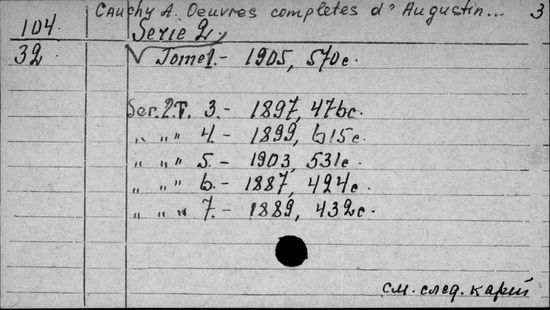 Cauchy A. Oeuvres completes d'Augustin... 3
104. Serie 2.
32 √ Tome 1. - 1905, 570c.
Ser. 2. T. 3. - 1897, 476c.
„ „ „ 4. - 1899, 615c.
„ „ „ 5. - 1903, 531c.
„ „ „ 6. - 1887, 424c.
„ „ „ 7. - 1889, 432c.
см. след. карт